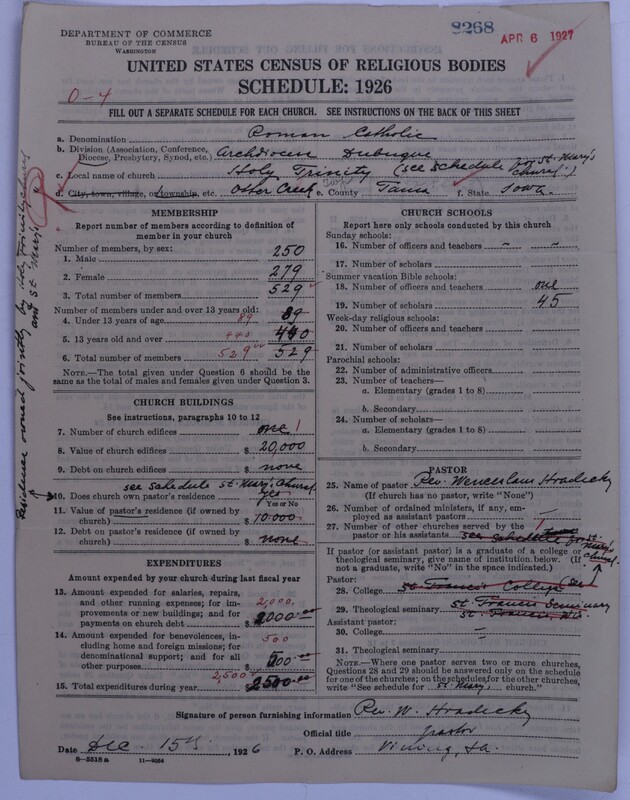 DEPARTMENT OF COMMERCE
BUREAU OF THE CENSUS
WASHINGTON
8268
APR 6 1927
UNITED STATES CENSUS OF RELIGIOUS BODIES
SCHEDULE: 1926
0-4
FILL OUT A SEPARATE SCHEDULE FOR EACH CHURCH. SEE INSTRUCTIONS ON THE BACK OF THIS SHEET
a. Denomination Roman Catholic
b. Division (Association, Conference, Diocese, Presbytery, Synod, etc.) Archdiocese Dubuque
c. Local name of church Holy Trinity (see Schedule for St. Mary's Church.)
d. City, town, village, or township, etc. Otter Creek e. County Tama f. State Iowa.
Residence owned jointly by Holy Trinity Church and St. Mary's "
MEMBERSHIP
Report number of members according to definition of member in your church
Number of members, by sex:
1. Male 250
2. Female 279
3. Total number of members 529
Number of members under and over 13 years old:
4. Under 13 years of age 89 89
5. 13 years old and over 440 440
6. Total number of members 529 529
NOTE.—The total given under Question 6 should be the same as the total of males and females given under Question 3.
CHURCH BUILDINGS
See instructions, paragraphs 10 to 12
7. Number of church edifices one 1
8. Value of church edifices $ 20,000
9. Debt on church edifices $ none
see Schedule St. Mary's Church
10. Does church own pastor's residence? yes
Yes or No
11. Value of pastor's residence (if owned by church) $ 10.000
12. Debt on pastor's residence (if owned by church) $ none
EXPENDITURES
Amount expended by your church during last fiscal year
13. Amount expended for salaries, repairs, and other running expenses; for improvements or new buildings; and for payments on church debt $ 2,000. 2000.00
14. Amount expended for benevolences, including home and foreign missions; for denominational support; and for all other purposes $ 500 500.00
15. Total expenditures during year $ 2,500 2500.00
CHURCH SCHOOLS
Report here only schools conducted by this church
Sunday schools:
16. Number of officers and teachers
17. Number of scholars
Summer vacation Bible schools:
18. Number of officers and teachers one
19. Number of scholars 45
Week-day religious schools:
20. Number of officers and teachers
21. Number of scholars
Parochial schools:
22. Number of administrative officers
23. Number of teachers—
a. Elementary (grades 1 to 8)
b. Secondary
24. Number of scholars—
a. Elementary (grades 1 to 8)
b. Secondary
PASTOR
25. Name of pastor Rev. Wenceslaus Hradecky
(If church has no pastor, write "None")
26. Number of ordained ministers, if any, employed as assistant pastors
27. Number of other churches served by the pastor or his assistants see schedule for St. Mary's Church
If pastor (or assistant pastor) is a graduate of a college or theological seminary, give name of institution below. (If not a graduate, write "No" in the space indicated.)
Pastor:
28. College St Francis College See
29. Theological seminary St Francis Seminary
St Francis Wis.
Assistant pastor:
30. College
31. Theological seminary
NOTE.—Where one pastor serves two or more churches, Questions 28 and 29 should be answered only on the schedule for one of the churches; on the schedules for the other churches, write "See schedule for St. Mary's church."
Signature of person furnishing information Rev. W. Hradecky
Official title pastor
Date Dec. 15th, 1926 P. O. Address Vining, Ia.
8—5518a 11—9054